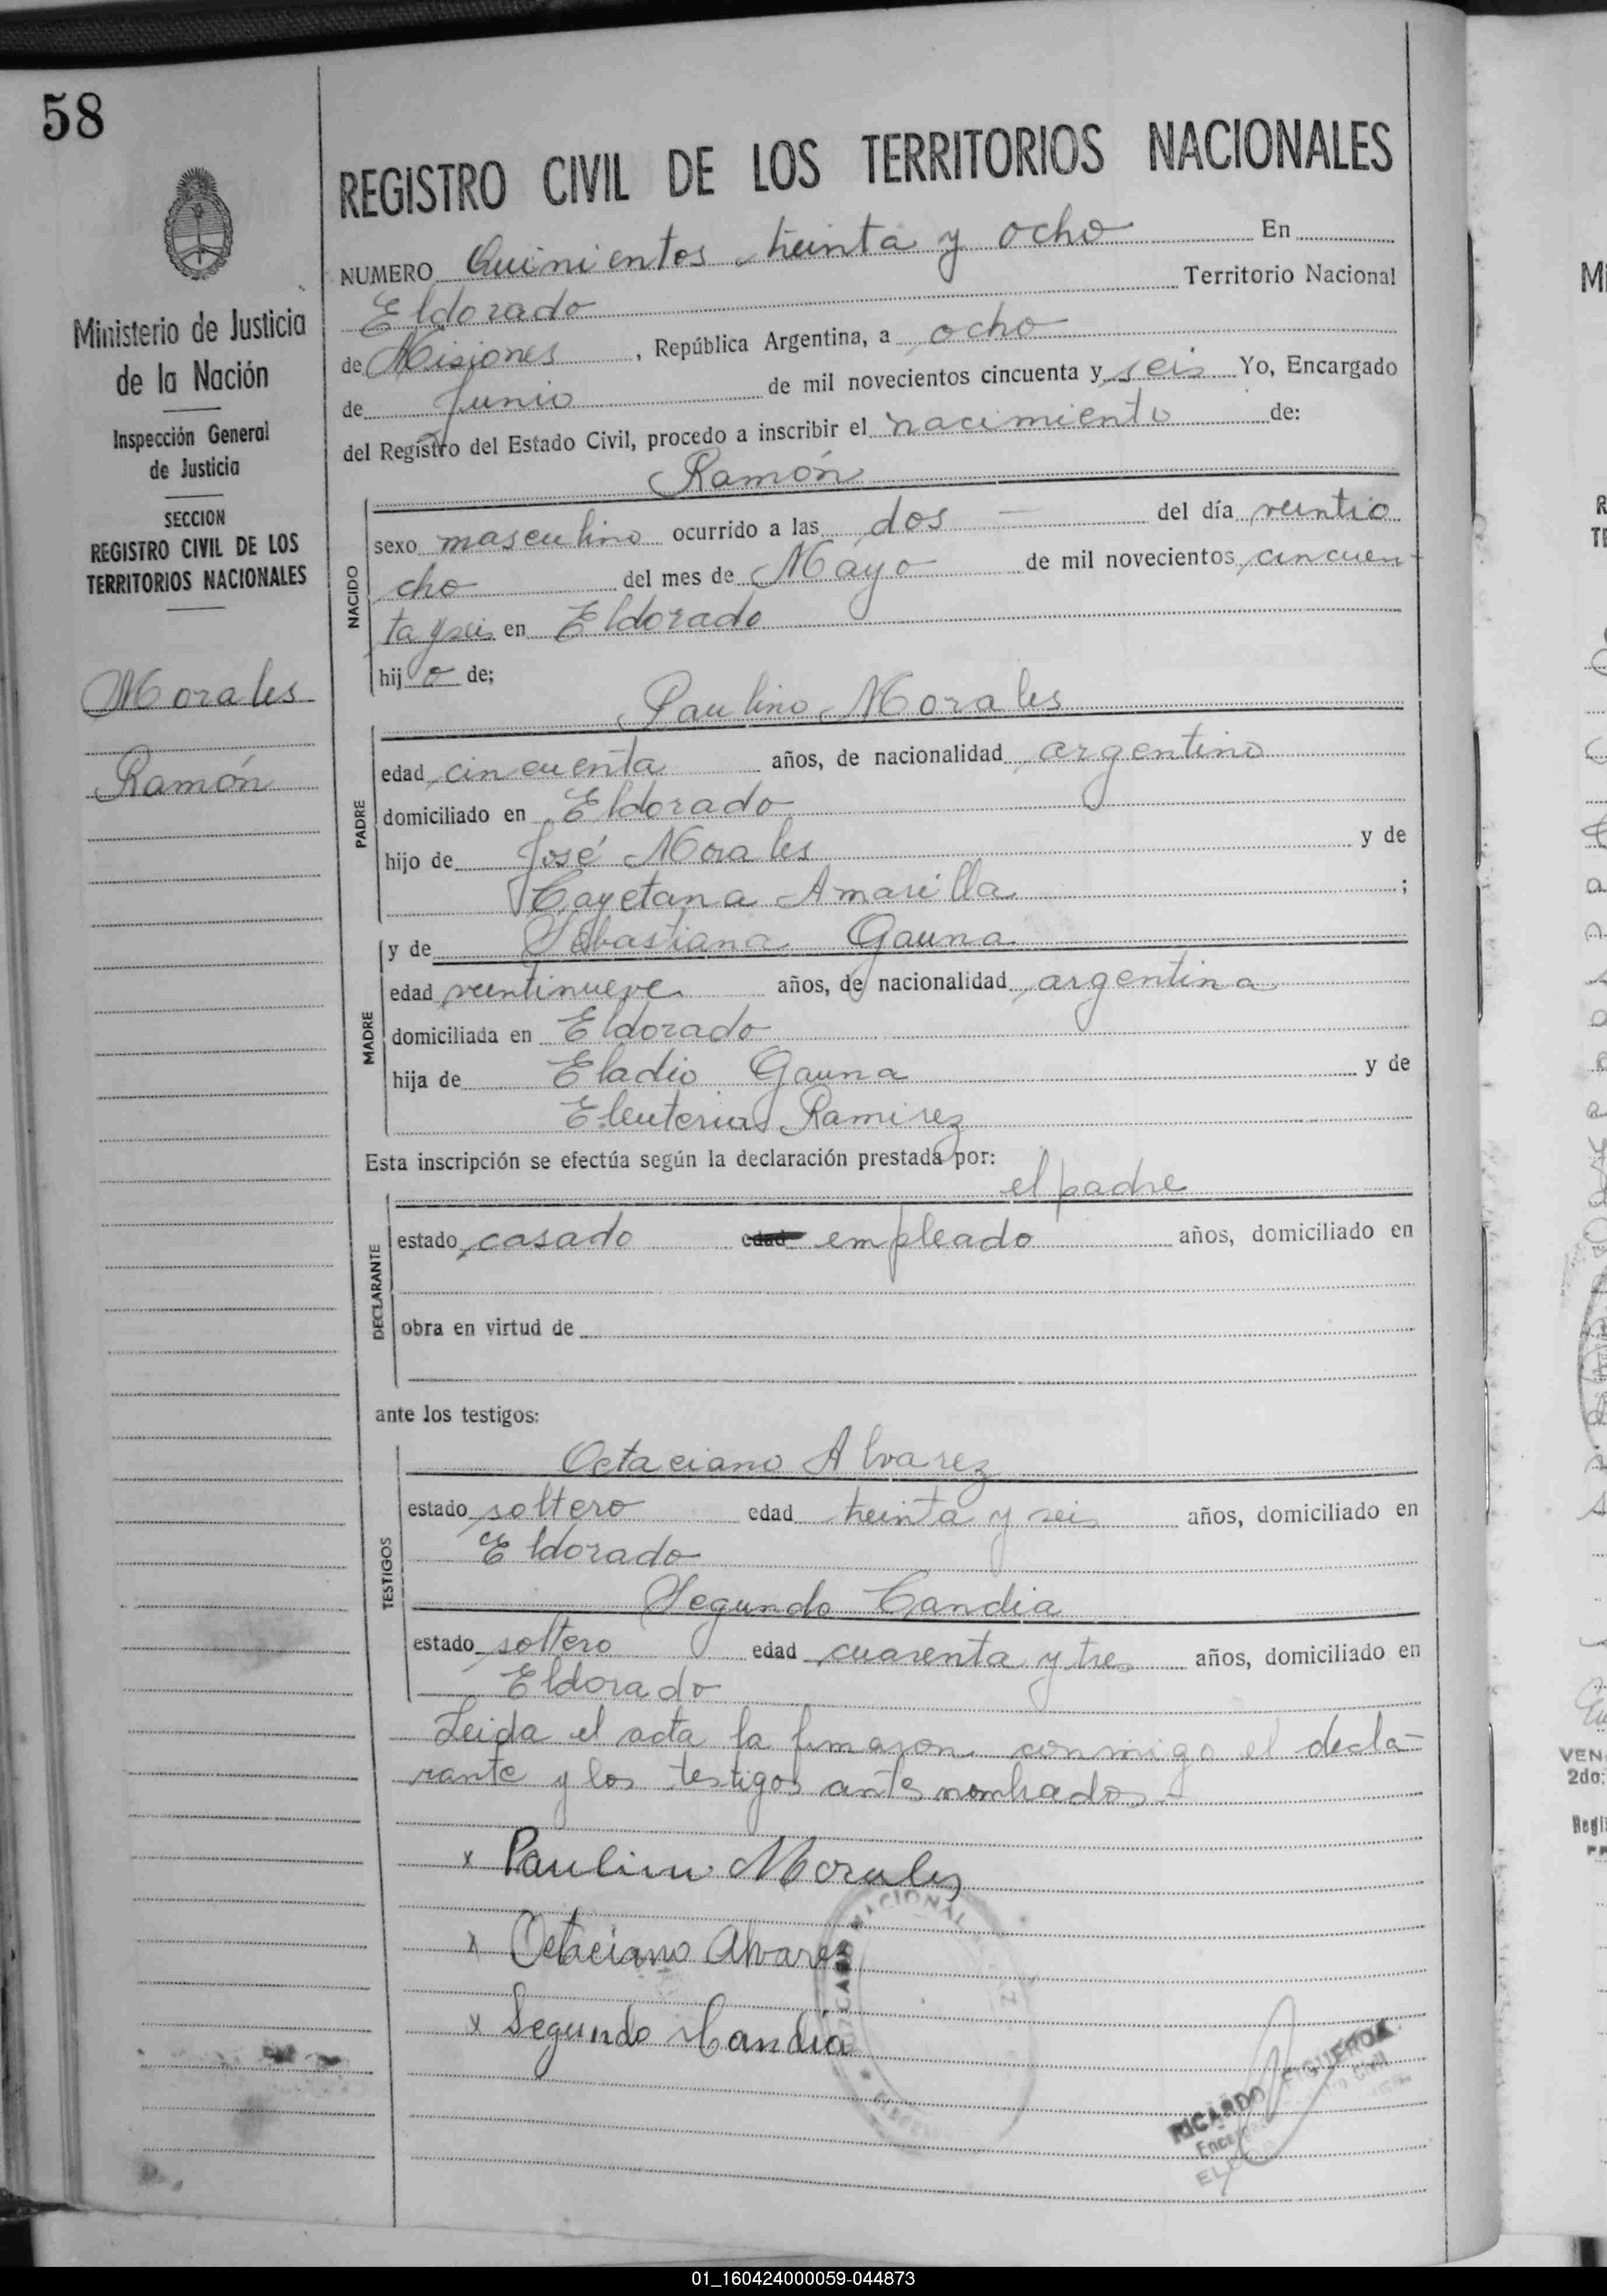 58
REGISTRO CIVIL DE LOS TERRITORIOS NACIONALES
Ministerio de Justicia
de la Nación
Inspección General
de Justicia
SECCION
REGISTRO CIVIL DE LOS
TERRITORIOS NACIONALES
Morales
Ramón
NUMERO Quinientos treinta y ocho En
Eldorado Territorio Nacional
de Misiones, República Argentina, a ocho
de Junio de mil novecientos cincuenta y seis Yo, Encargado
del Registro del Estado Civil, procedo a inscribir el nacimiento de:
Ramón
NACIDO
sexo masculino ocurrido a las dos — del día veintio
cho del mes de Mayo de mil novecientos cincuen-
ta y seis en Eldorado
hij o de;
Paulino Morales
PADRE
edad cincuenta años, de nacionalidad argentino
domiciliado en Eldorado
hijo de José Morales y de
Cayetana Amarilla ;
y de Sebastiana Gauna
MADRE
edad veintinueve años, de nacionalidad argentina
domiciliada en Eldorado
hija de Eladio Gauna y de
Eleuteria Ramirez
Esta inscripción se efectúa según la declaración prestada por:
el padre
DECLARANTE
estado casado edad empleado años, domiciliado en
obra en virtud de
ante los testigos:
Octaciano Alvarez
TESTIGOS
estado soltero edad treinta y seis años, domiciliado en
Eldorado
Segundo Candia
estado soltero edad cuarenta y tres años, domiciliado en
Eldorado
Leida el acta la firmaron conmigo el decla-
rante y los testigos antes nombrados.-
x Paulino Morales
x Octaciano Alvarez
x Segundo Candia
NACIONAL
RICARDO FIGUEROA
01_160424000059-044873